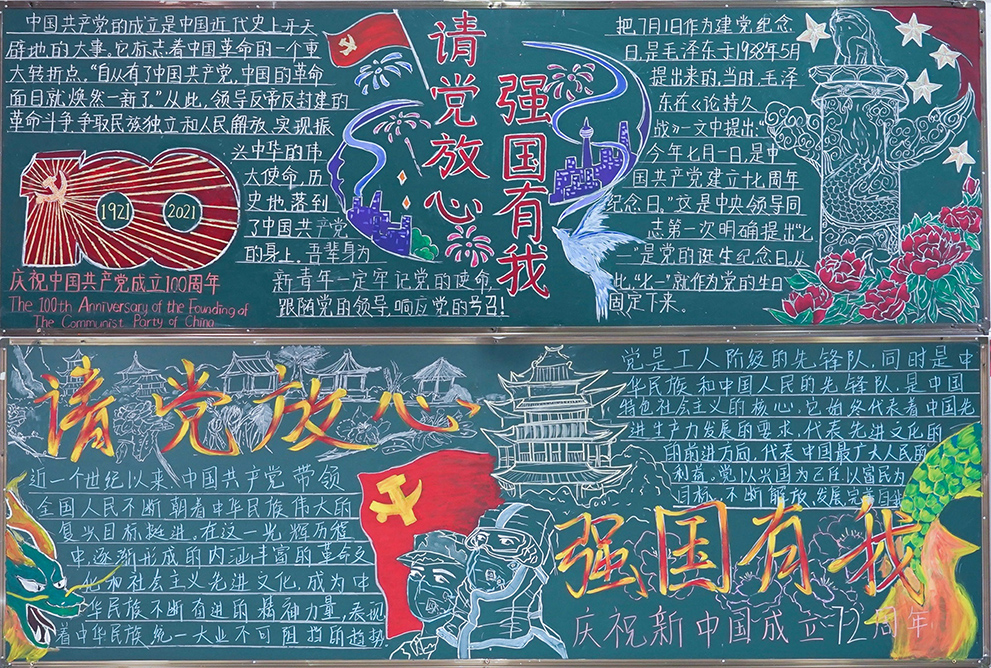 中国共产党的成立是中国近代史上开天
辟地的大事。它标志着中国革命的一个重
大转折点。“自从有了中国共产党,中国的革命
面目就焕然一新了”从此,领导反帝反封建的
革命斗争争取民族独立和人民解放,实现振
兴中华的伟
大使命,历
史地落到
了中国共产党
的身上。吾辈身为
新青年一定牢记党的使命,
跟随党的领导,响应党的号召!
1921 2021
庆祝中国共产党成立100周年
The 100th Anniversary of the Founding of
The Communist Party of China
请党放心
强国有我
把7月1日作为建党纪念
日,是毛泽东于1938年5月
提出来的,当时,毛泽
东在《论持久
战》一文中提出:
“今年七月一日,是中
国共产党建立十七周年
纪念日。”这是中央领导同
志第一次明确提出“七
一”是党的诞生纪念日。从
此,“七一”就作为党的生日
固定下来。
请党放心
近一个世纪以来,中国共产党带领
全国人民不断朝着中华民族伟大的
复兴目标挺进。在这一光辉历程
中,逐渐形成的内涵丰富的革命文
化和社会主义先进文化,成为中
华民族不断奋进的精神力量,表现
着中华民族统一大业不可阻挡的趋势
党是工人阶级的先锋队,同时是中
华民族和中国人民的先锋队,是中国
特色社会主义的核心,它始终代表着中国先
进生产力发展的要求,代表先进文化的
的前进方向,代表中国最广大人民的
利益。党以兴国为己任,以富民为
目标,不断解放,发展完善自我
强国有我
庆祝新中国成立72周年